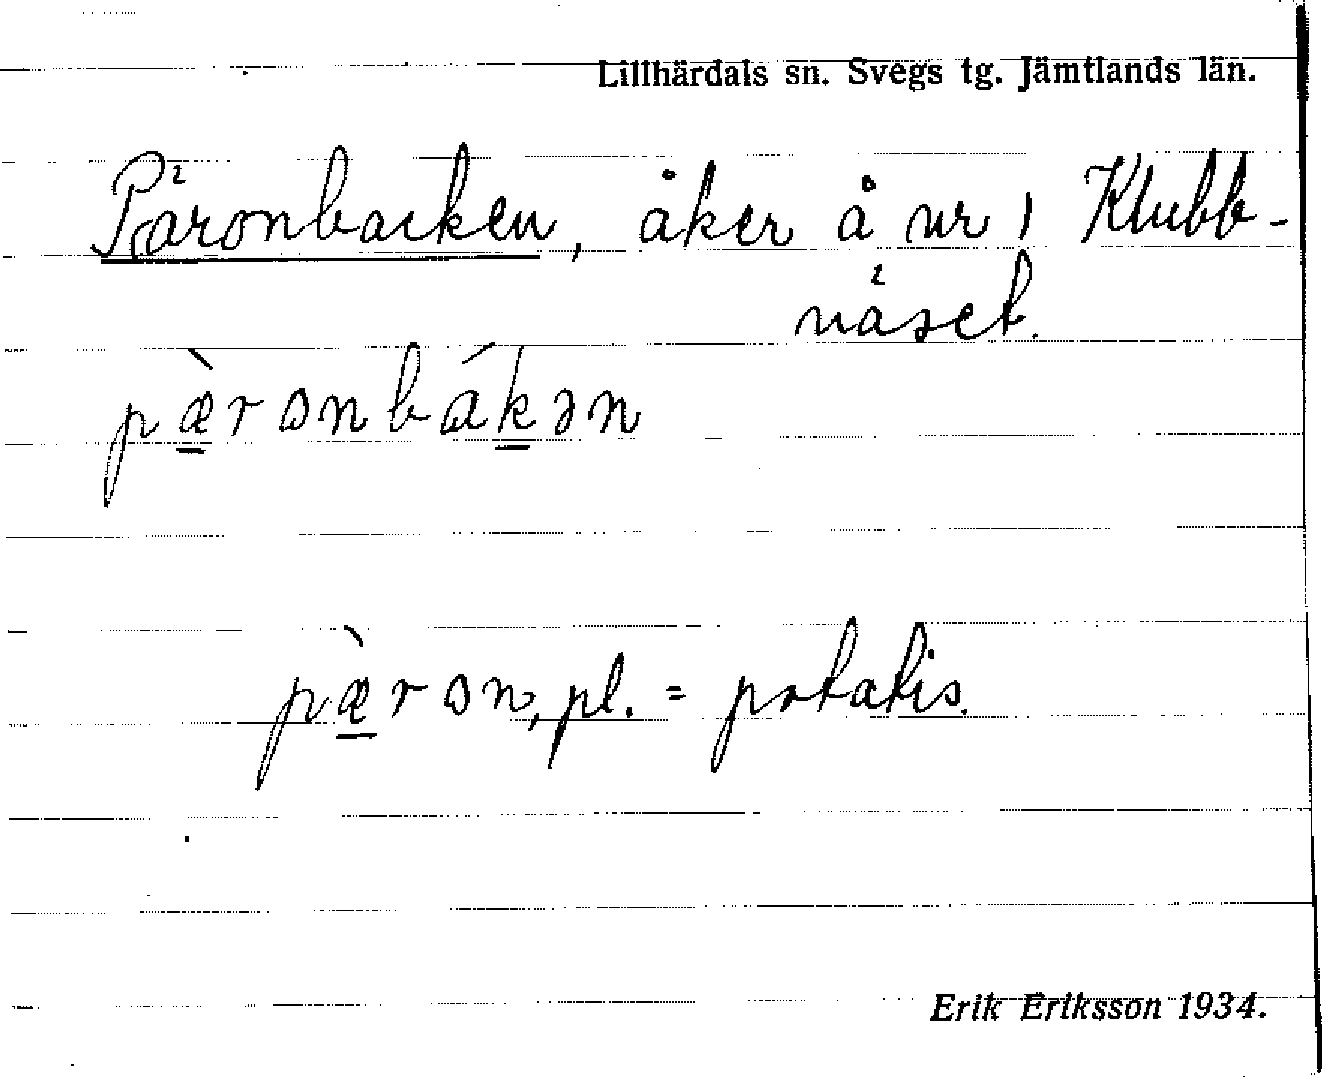 Lillhärdals sn. Svegs tg. Jämtlands län.
Päronbacken, åker å nr 1 Klubb-
näset.
pæ̀ronbákən
pæ̀ron, pl. = potatis.
Erik Eriksson 1934.